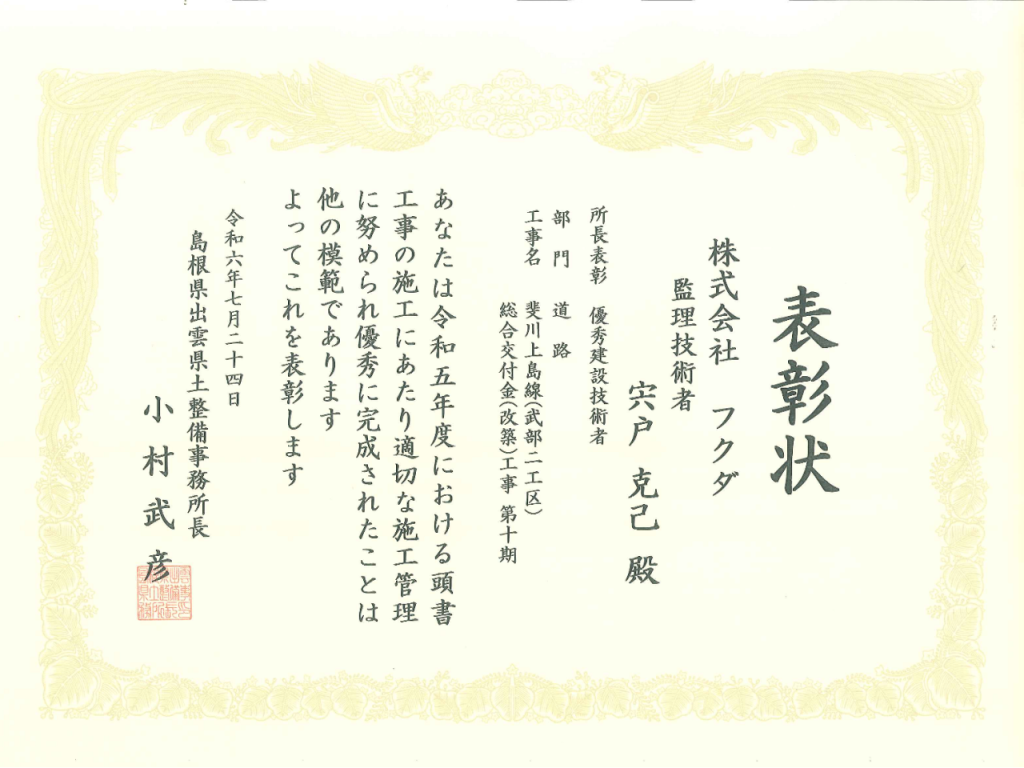 表彰状
株式会社 フクダ
監理技術者
宍戸 克己 殿
所長表彰 優秀建設技術者
部門 道路
工事名 斐川上島線(武部二工区)
総合交付金(改築)工事 第十期
あなたは令和五年度における頭書
工事の施工にあたり適切な施工管理
に努められ優秀に完成されたことは
他の模範であります
よってこれを表彰します
令和六年七月二十四日
島根県出雲県土整備事務所長
小村武彦